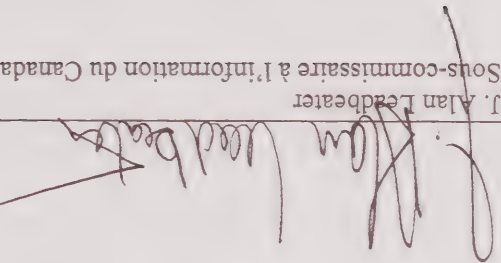 J. Alan Leadbeater
J. Alan Leadbeater
Sous-commissaire à l'information du Canada